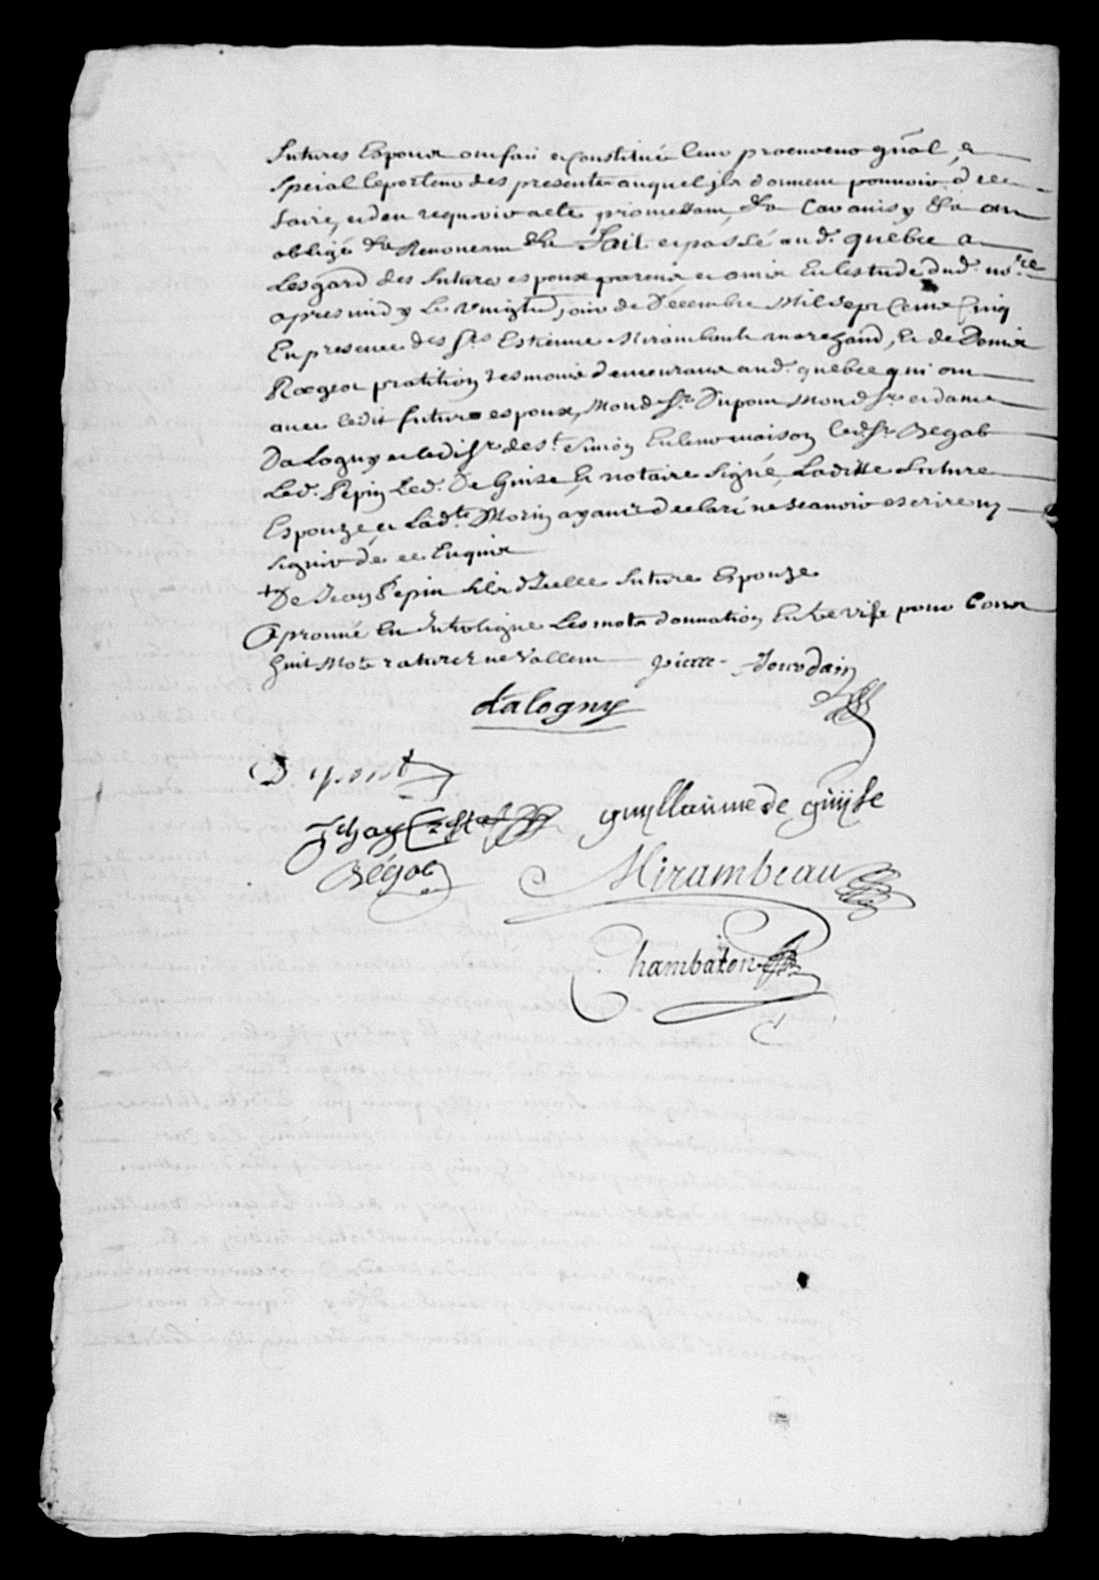 futures Espoux ont fait et constitué leur procureur gñal, et
special le porteur des presentes auquel jls donnent pouvoir de ce
faire, et d'en requerir acte, promettant &a
obligt &a Renonceant &a fait et passé aud. quebec a
Les gard des futurs espoux parens et amix En lestude dud. nore
apres midy Le vingtie jour de Decembre Mil sept Cent Cinq
En presence des srs Estienne Mirambault marchand, et de Denis
pratitien tesmoins demeurans aud. quebec qui ont
avec ledit futur espoux, Mond sr. Dupont Mond sr. et dame
Dalogny et ledi sr. de st. Simon En leur maison led. sr Begab
Led. Pepin Led. De Guise, Et notaire signé, Laditte future
Espouze, et Ladte. Morin ayant declaré ne scavoir escrire ny
signer de ce Enquis
+ De Jean Pepin fils d'Icelle future Espouze
Aprouvé En Interligne Les mots donnation Entre vifs pour
huit Mots raturez ne Vallent pierre Jourdain
dalogny
Dupont
guyllaumede guysse
Bégab
Mirambeau
Chambalon